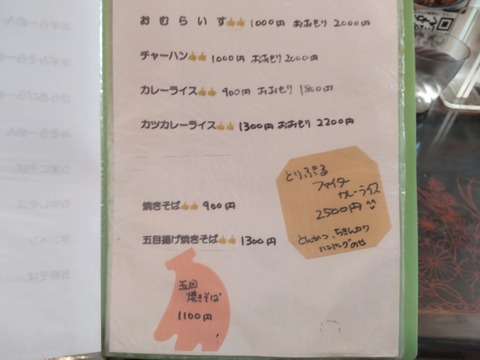 おむらいす👍👍1000円 おおもり 2000円
チャーハン👍👍1000円 おおもり 2000円
カレーライス👍👍900円 おおもり 1800円
カツカレーライス👍👍1300円 おおもり 2200円
とりぷる
ファイター
カレーライス
2500円
とんかつ、ちきんかつ
ハンバーグのせ
焼きそば👍👍900円
五目揚げ焼きそば👍👍1300円
五目
焼きそば
1100円